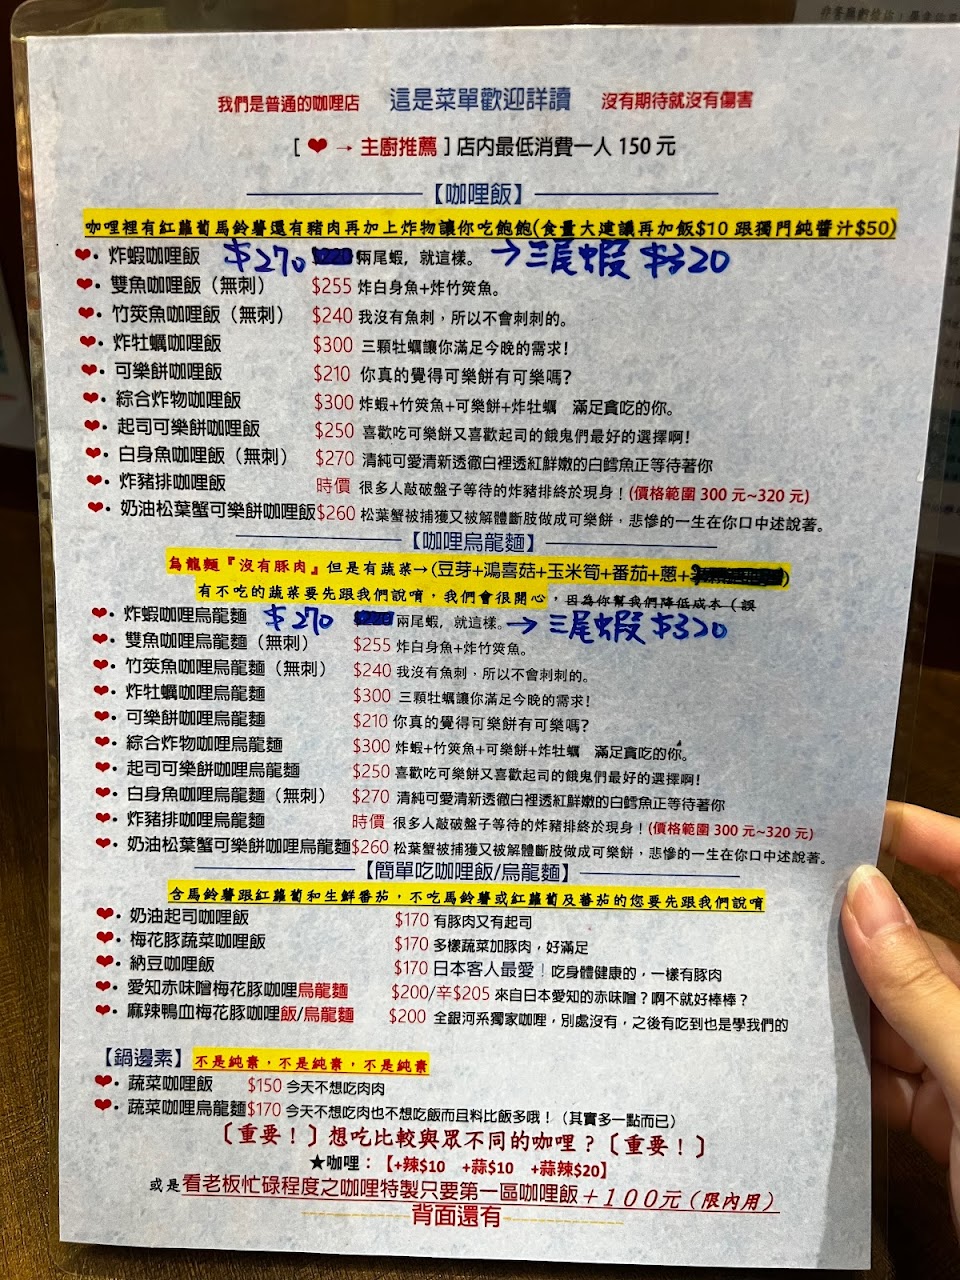 我們是普通的咖哩店 這是菜單歡迎詳讀 沒有期待就沒有傷害
[ ❤ → 主廚推薦 ] 店內最低消費一人 150 元
【咖哩飯】
咖哩裡有紅蘿蔔馬鈴薯還有豬肉再加上炸物讓你吃飽飽(食量大建議再加飯$10 跟獨門純醬汁$50)
❤・炸蝦咖哩飯 $270 兩尾蝦，就這樣。 →三尾蝦 $320
❤・雙魚咖哩飯（無刺） $255 炸白身魚+炸竹筴魚。
❤・竹筴魚咖哩飯（無刺） $240 我沒有魚刺，所以不會刺刺的。
❤・炸牡蠣咖哩飯 $300 三顆牡蠣讓你滿足今晚的需求!
❤・可樂餅咖哩飯 $210 你真的覺得可樂餅有可樂嗎?
❤・綜合炸物咖哩飯 $300 炸蝦+竹筴魚+可樂餅+炸牡蠣 滿足貪吃的你。
❤・起司可樂餅咖哩飯 $250 喜歡吃可樂餅又喜歡起司的餓鬼們最好的選擇啊!
❤・白身魚咖哩飯（無刺） $270 清純可愛清新透徹白裡透紅鮮嫩的白鱈魚正等待著你
❤・炸豬排咖哩飯 時價 很多人敲破盤子等待的炸豬排終於現身！(價格範圍 300 元~320 元)
❤・奶油松葉蟹可樂餅咖哩飯$260 松葉蟹被捕獲又被解體斷肢做成可樂餅，悲慘的一生在你口中述說著。
【咖哩烏龍麵】
烏龍麵『沒有豚肉』但是有蔬菜→(豆芽+鴻喜菇+玉米筍+番茄+蔥+
有不吃的蔬菜要先跟我們說唷，我們會很開心，因為你幫我們降低成本（誤
❤・炸蝦咖哩烏龍麵 $270 兩尾蝦，就這樣。→三尾蝦 $320
❤・雙魚咖哩烏龍麵（無刺） $255 炸白身魚+炸竹筴魚。
❤・竹筴魚咖哩烏龍麵（無刺） $240 我沒有魚刺，所以不會刺刺的。
❤・炸牡蠣咖哩烏龍麵 $300 三顆牡蠣讓你滿足今晚的需求!
❤・可樂餅咖哩烏龍麵 $210 你真的覺得可樂餅有可樂嗎?
❤・綜合炸物咖哩烏龍麵 $300 炸蝦+竹筴魚+可樂餅+炸牡蠣 滿足貪吃的你。
❤・起司可樂餅咖哩烏龍麵 $250 喜歡吃可樂餅又喜歡起司的餓鬼們最好的選擇啊!
❤・白身魚咖哩烏龍麵（無刺） $270 清純可愛清新透徹白裡透紅鮮嫩的白鱈魚正等待著你
❤・炸豬排咖哩烏龍麵 時價 很多人敲破盤子等待的炸豬排終於現身！(價格範圍 300 元~320 元)
❤・奶油松葉蟹可樂餅咖哩烏龍麵$260 松葉蟹被捕獲又被解體斷肢做成可樂餅，悲慘的一生在你口中述說著。
【簡單吃咖哩飯/烏龍麵】
含馬鈴薯跟紅蘿蔔和生鮮番茄，不吃馬鈴薯或紅蘿蔔及蕃茄的您要先跟我們說唷
❤・奶油起司咖哩飯 $170 有豚肉又有起司
❤・梅花豚蔬菜咖哩飯 $170 多樣蔬菜加豚肉，好滿足
❤・納豆咖哩飯 $170 日本客人最愛！吃身體健康的，一樣有豚肉
❤・愛知赤味噌梅花豚咖哩烏龍麵 $200/辛$205 來自日本愛知的赤味噌？啊不就好棒棒？
❤・麻辣鴨血梅花豚咖哩飯/烏龍麵 $200 全銀河系獨家咖哩，別處沒有，之後有吃到也是學我們的
【鍋邊素】不是純素，不是純素，不是純素
❤・蔬菜咖哩飯 $150 今天不想吃肉肉
❤・蔬菜咖哩烏龍麵$170 今天不想吃肉也不想吃飯而且料比飯多哦！（其實多一點而已）
〔重要！〕想吃比較與眾不同的咖哩？〔重要！〕
★咖哩：【+辣$10 +蒜$10 +蒜辣$20】
或是看老板忙碌程度之咖哩特製只要第一區咖哩飯＋１００元（限內用）
背面還有